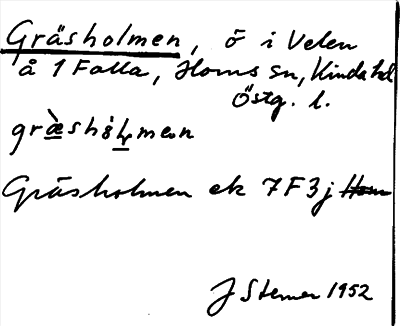 Gräsholmen, ö i Velen
å 1 Falla, Horns sn, Kinda hd
Östg. l.
Gräsholmen ek 7F3j
J Sterner 1952